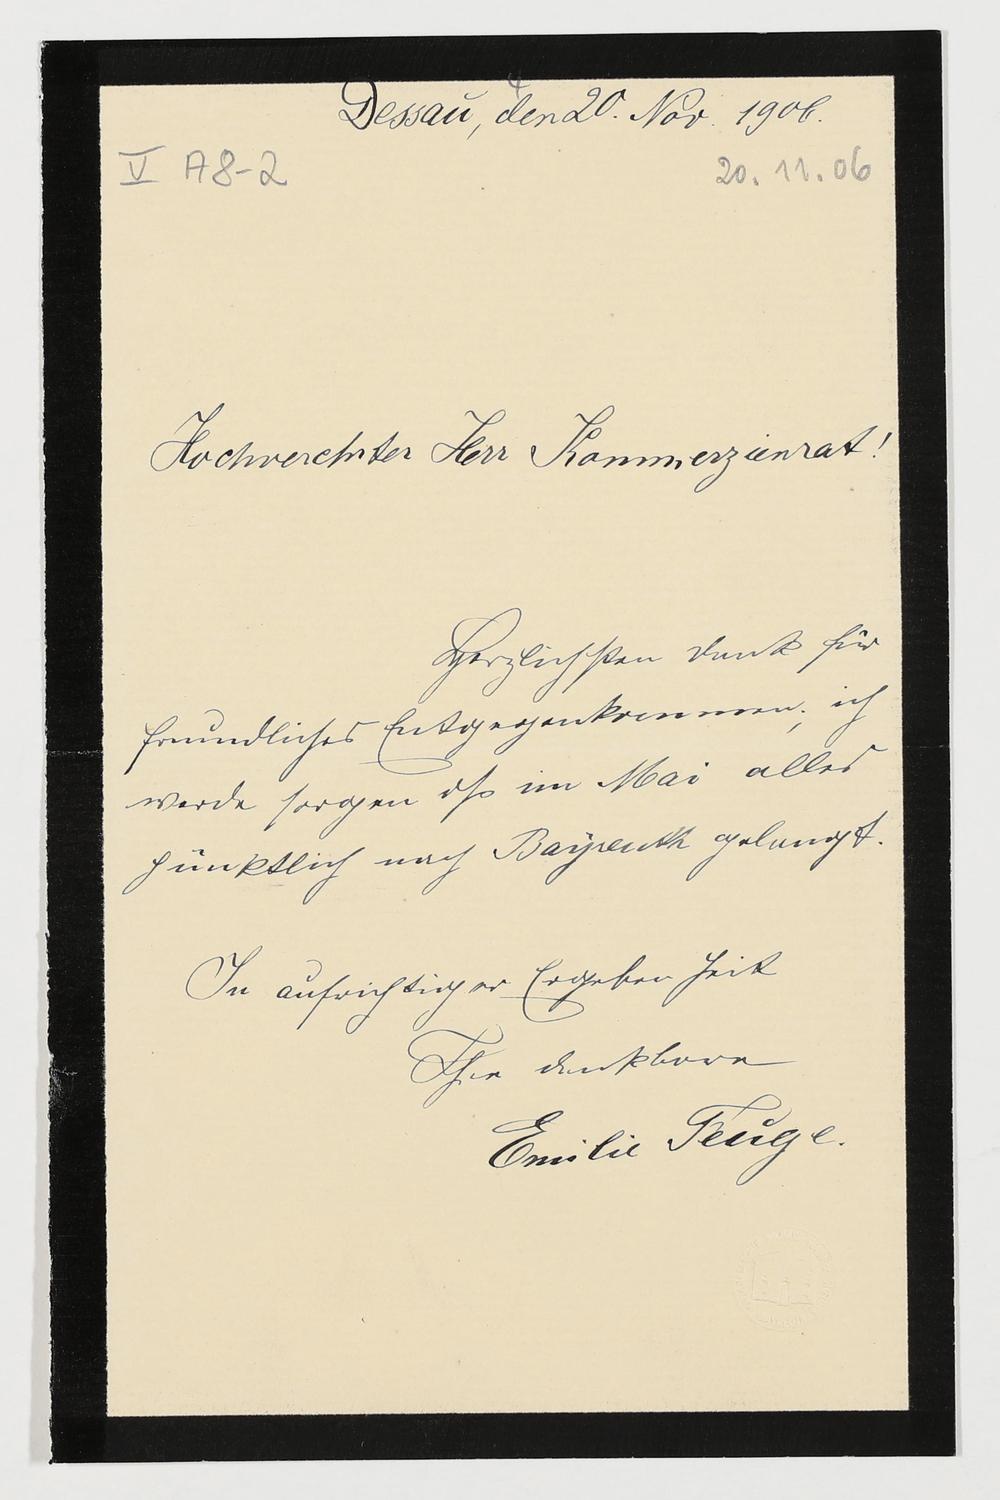 Dessau, den 20. Nov. 1906.
V A8-2
20.11.06
Hochverehrter Herr Kommerzienrat!
Herzlichsten Dank für
freundliches Entgegenkommen; ich
werde sorgen daß im Mai alles
pünktlich nach Bayreuth gelangt.
In aufrichtiger Ergebenheit
Ihre dankbare
Emilie Feuge.